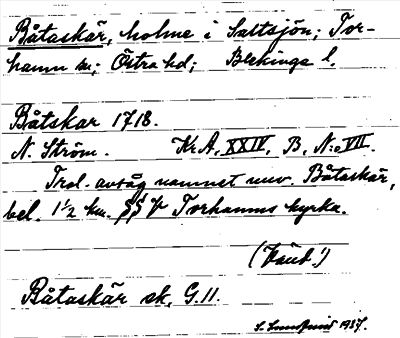 Båtaskär, holme i Saltsjön; Tor-
hamn sn; Östra hd; Blekinge l.
Båtskar 1718.
N. Ström. Kr.A. XXIV, B, N:o VII.
Trol. avsåg namnet nuv. Båtaskär,
bel. 1 1/2 km. Torhamns kyrka.
Båtaskär sk, G.11.
1937.